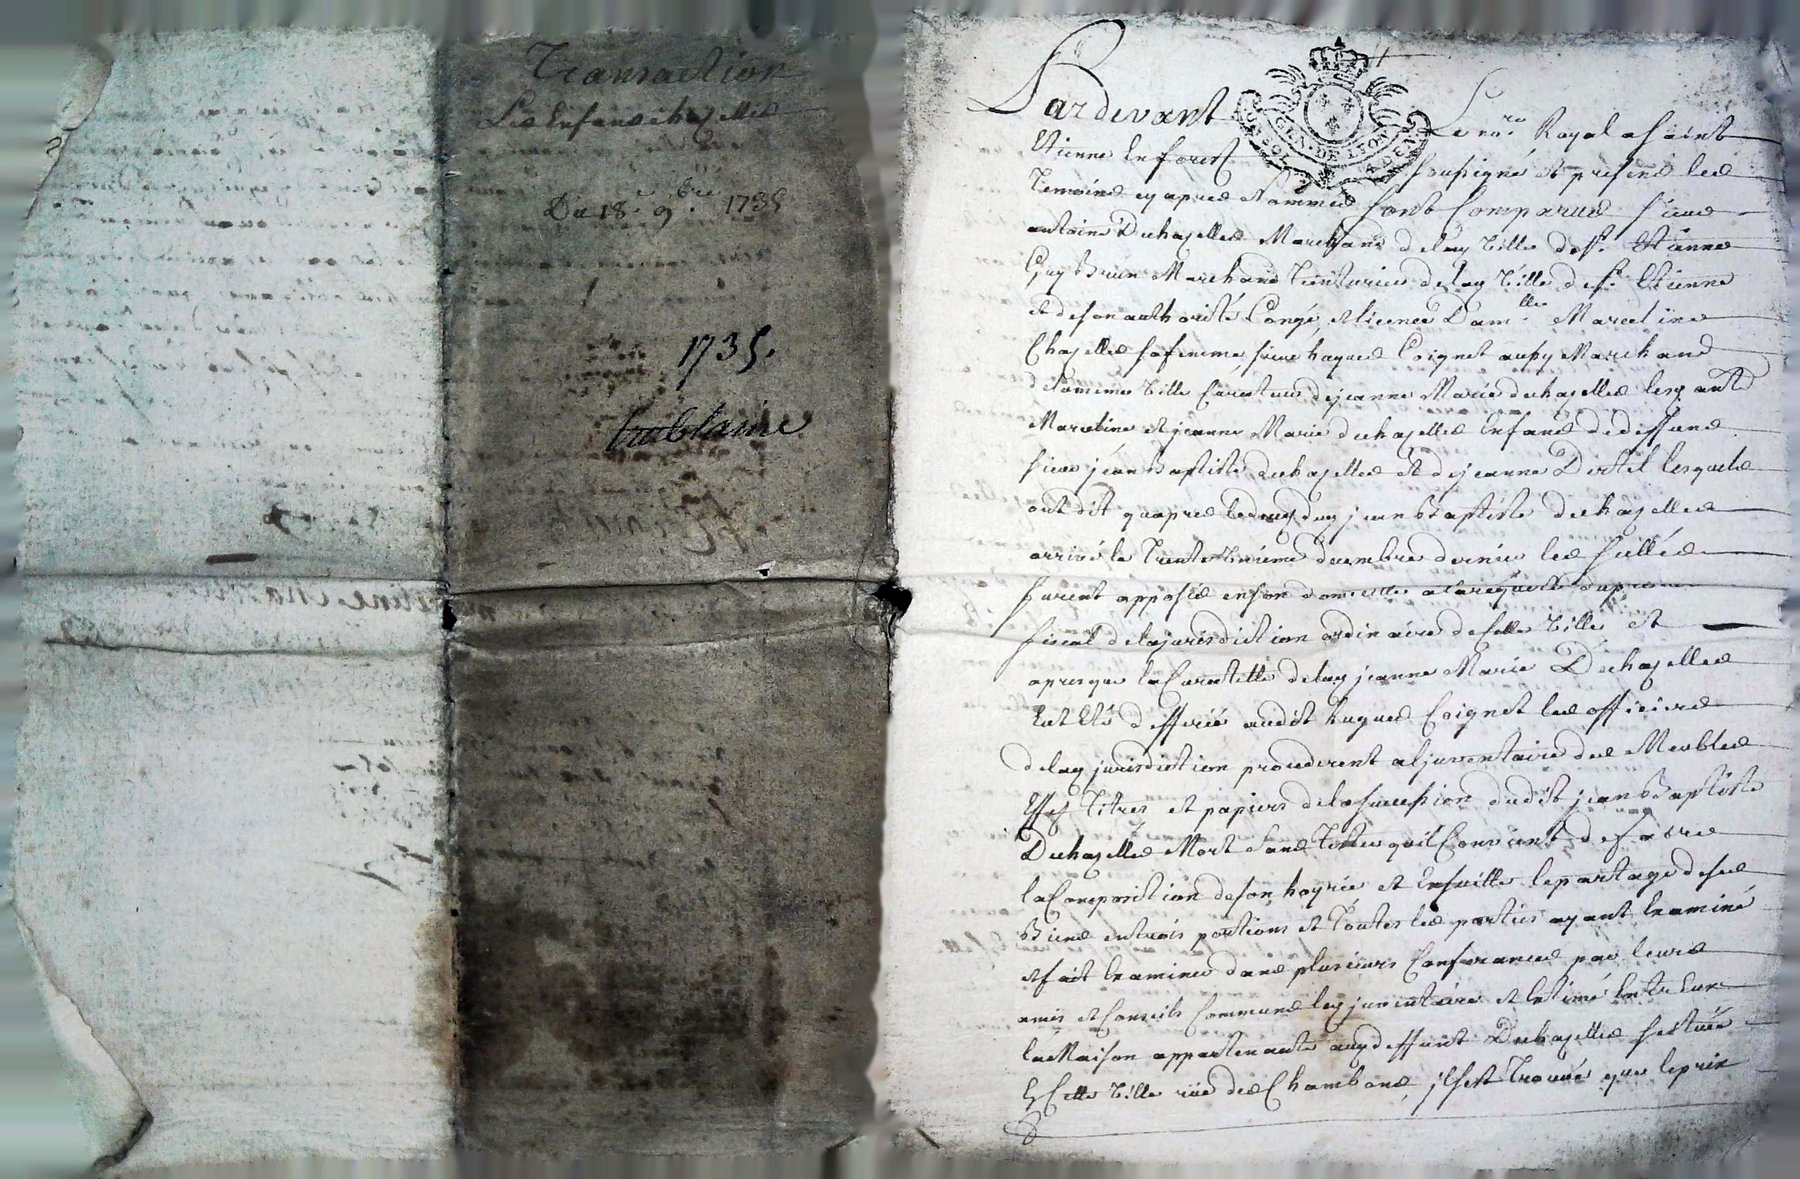 Transaction
Les Enfans chazelles
Du 18.e 9.bre 1735
1735.
Pardevant Le no.re Royal a Saint
Etienne En forest soussigné et presens les
temoins cy apres Nommés sont Comparus sieurs
antoine Duchazelles Marchand de lad ville de St. Etienne
Guy Brun Marchand Teinturier de lad ville de St. Etienne
et de son authorité Congé et licence Dam.lle Marceline
Chazelles sa femme, sieur hugues Coignet aussy Marchand
de la meme ville Curateur de jeanne Marie duchazelles lesq. ant.
Marceline et jeanne Marie duchazelles Enfans de deffunt
sieur jean Baptiste duchazelles et de jeanne lesquels
ont dit quapres le deces dud jean Baptiste duchazelles
arrivé le trente unieme decembre dernier les sellés
furent apposés en son domicille a la requete du pro.r
fiscal de la jurisdiction ordinaire de cette ville et
apres que la Curatelle de lad jeanne Marie Duchazelles
Eut Eté defferée audit hugues Coignet les officiers
de lad jurisdiction procederent a l'jnventaire des Meubles
Effets titres et papiers de la succession dudit jean Baptiste
Duchazelles Mort sans tester quil Convient de faire
la Composition de son hoyrie et Ensuitte le partage de ses
Biens en trois portions et toutes les parties ayant Examiné
et fait Examiner dans plusieurs Conferances par leurs
amis et Conseils Communs led jnventaire et Estimé Entr Eux
la Maison appartenante aud deffunt Duchazelles scituée
En Cette ville rüe des Chambons, jl s'est trouvé que le prix